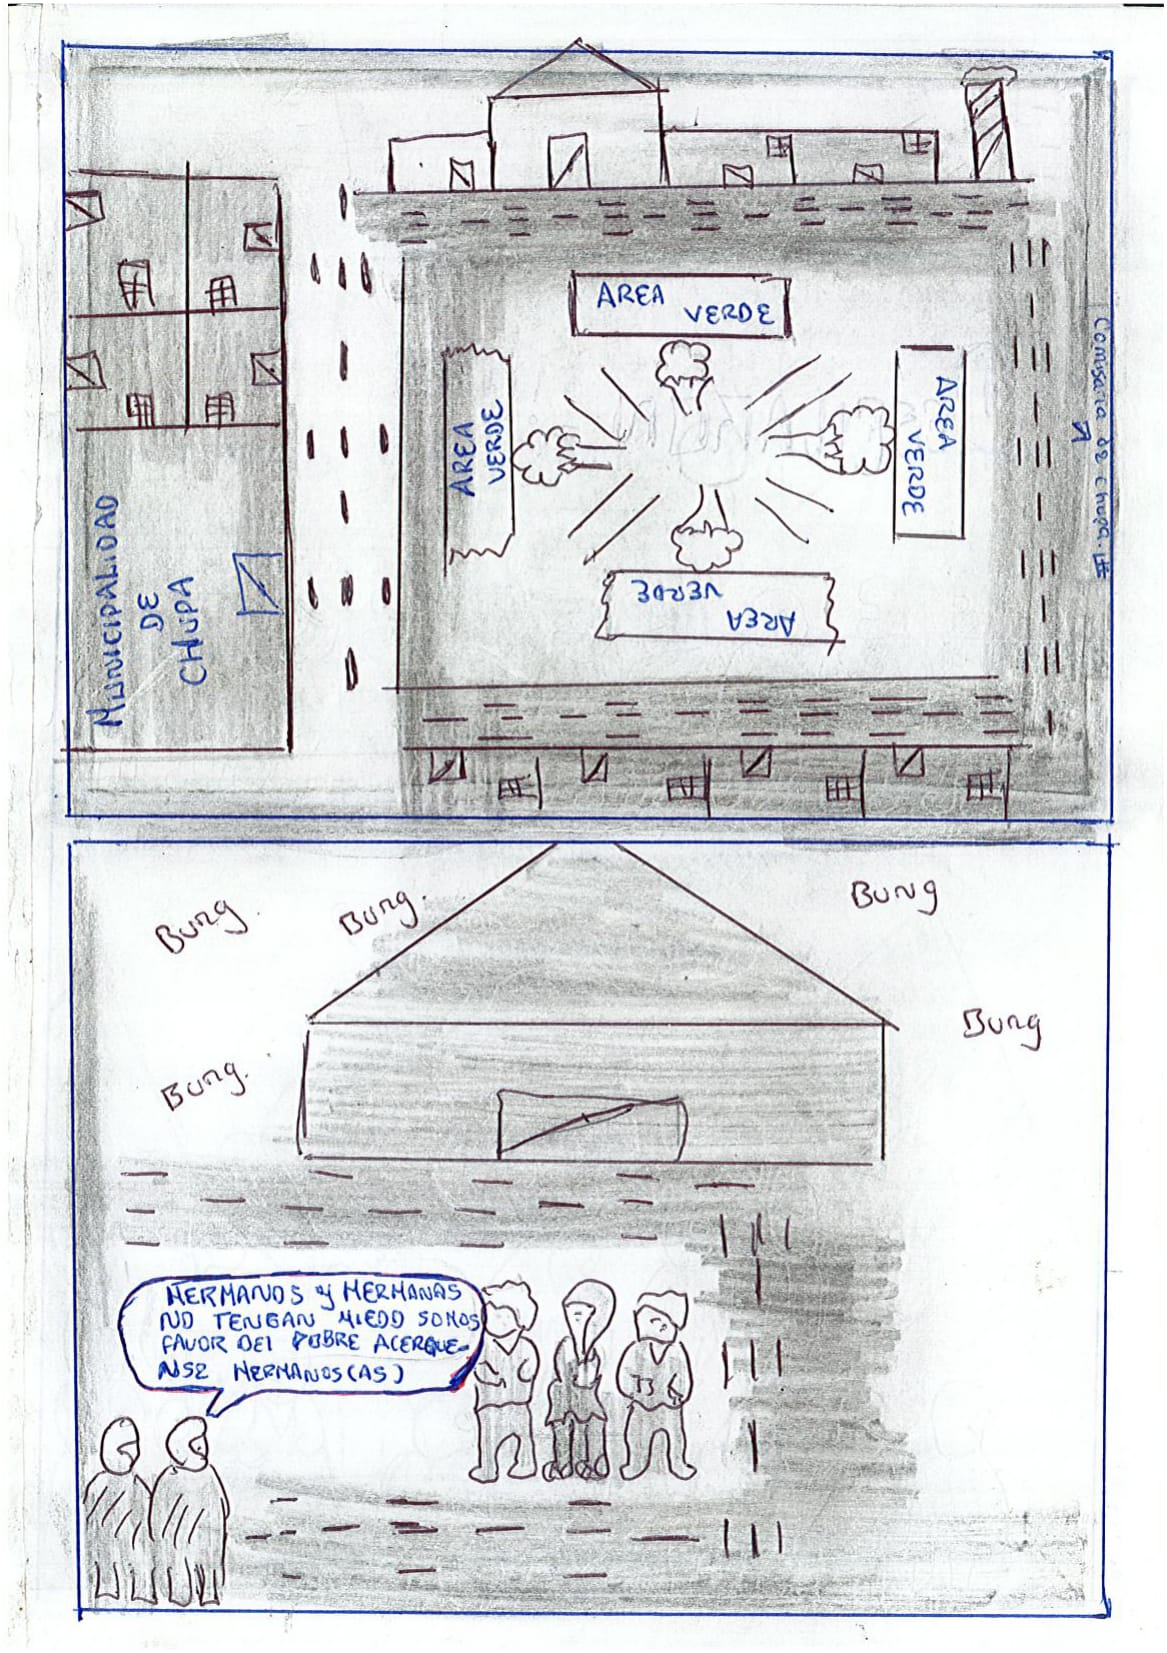 AREA
VERDE
AREA
VERDE
AREA
VERDE
AREA
VERDE
Comisaria de chupa.
MUNICIPALIDAD
DE
CHUPA
Bung.
Bung.
Bung
Bung
Bung.
HERMANOS y HERMANAS
NO TENGAN MIEDO SOMOS
FAVOR DEL POBRE ACERQUE-
NSE HERMANOS(AS)